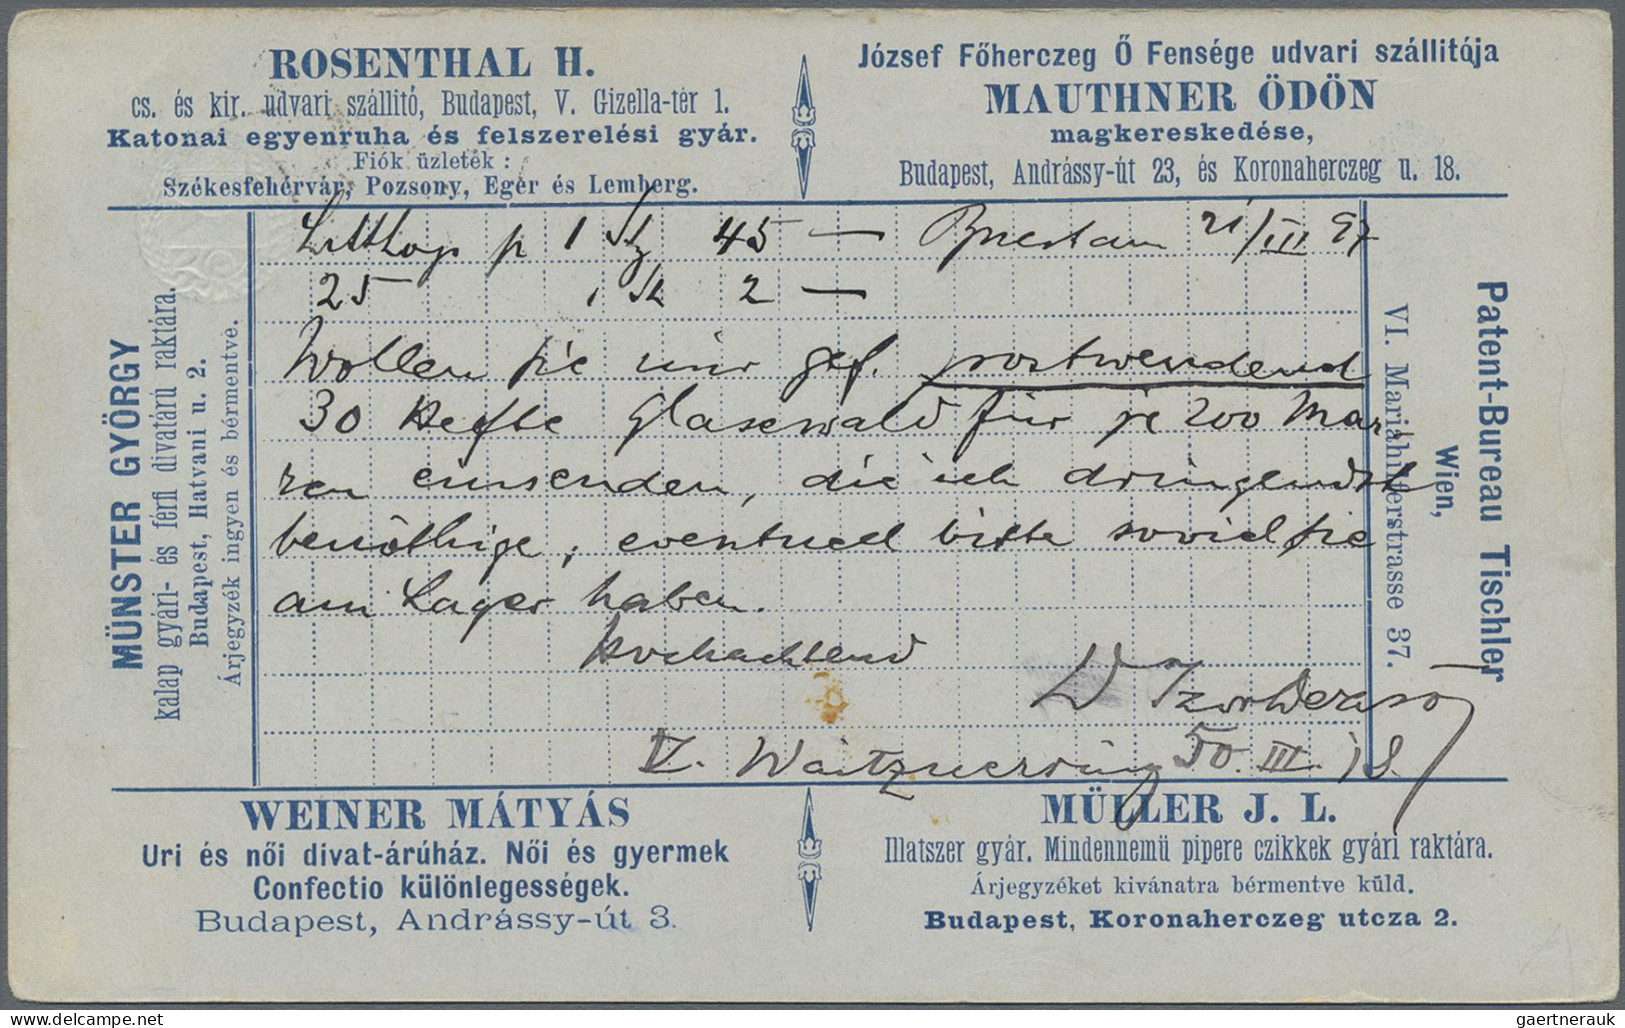 ROSENTHAL H.
cs. és kir. udvari szállitó, Budapest, V. Gizella-tér 1.
Katonai egyenruha és felszerelési gyár.
Fiók üzletek :
Székesfehérvár, Pozsony, Eger és Lemberg.
József Főherczeg Ő Fensége udvari szállitója
MAUTHNER ÖDÖN
magkereskedése,
Budapest, Andrássy-út 23, és Koronaherczeg u. 18.
MÜNSTER GYÖRGY
kalap gyári- és férfi divatárú raktára.
Budapest, Hatvani u. 2.
Árjegyzék ingyen és bérmentve.
p 1 St 45 — 21/III 97
25 1 St 2 —
Wollen Sie mir gef. postwendend
30 Hefte Glasewald für je 200 Mar
ken einsenden, die ich dringendst
benöthige, eventuell bitte soviel Sie
am Lager haben.
Hochachtend
V. Waitznerring 50. III. 18.
Patent-Bureau Tischler
Wien,
VI. Mariahilferstrasse 37.
WEINER MÁTYÁS
Uri és női divat-árúház. Női és gyermek
Confectio különlegességek.
Budapest, Andrássy-út 3.
MÜLLER J. L.
Illatszer gyár. Mindennemü pipere czikkek gyári raktára.
Árjegyzéket kivánatra bérmentve küld.
Budapest, Koronaherczeg utcza 2.
www.delcampe.net
gaertnerauk